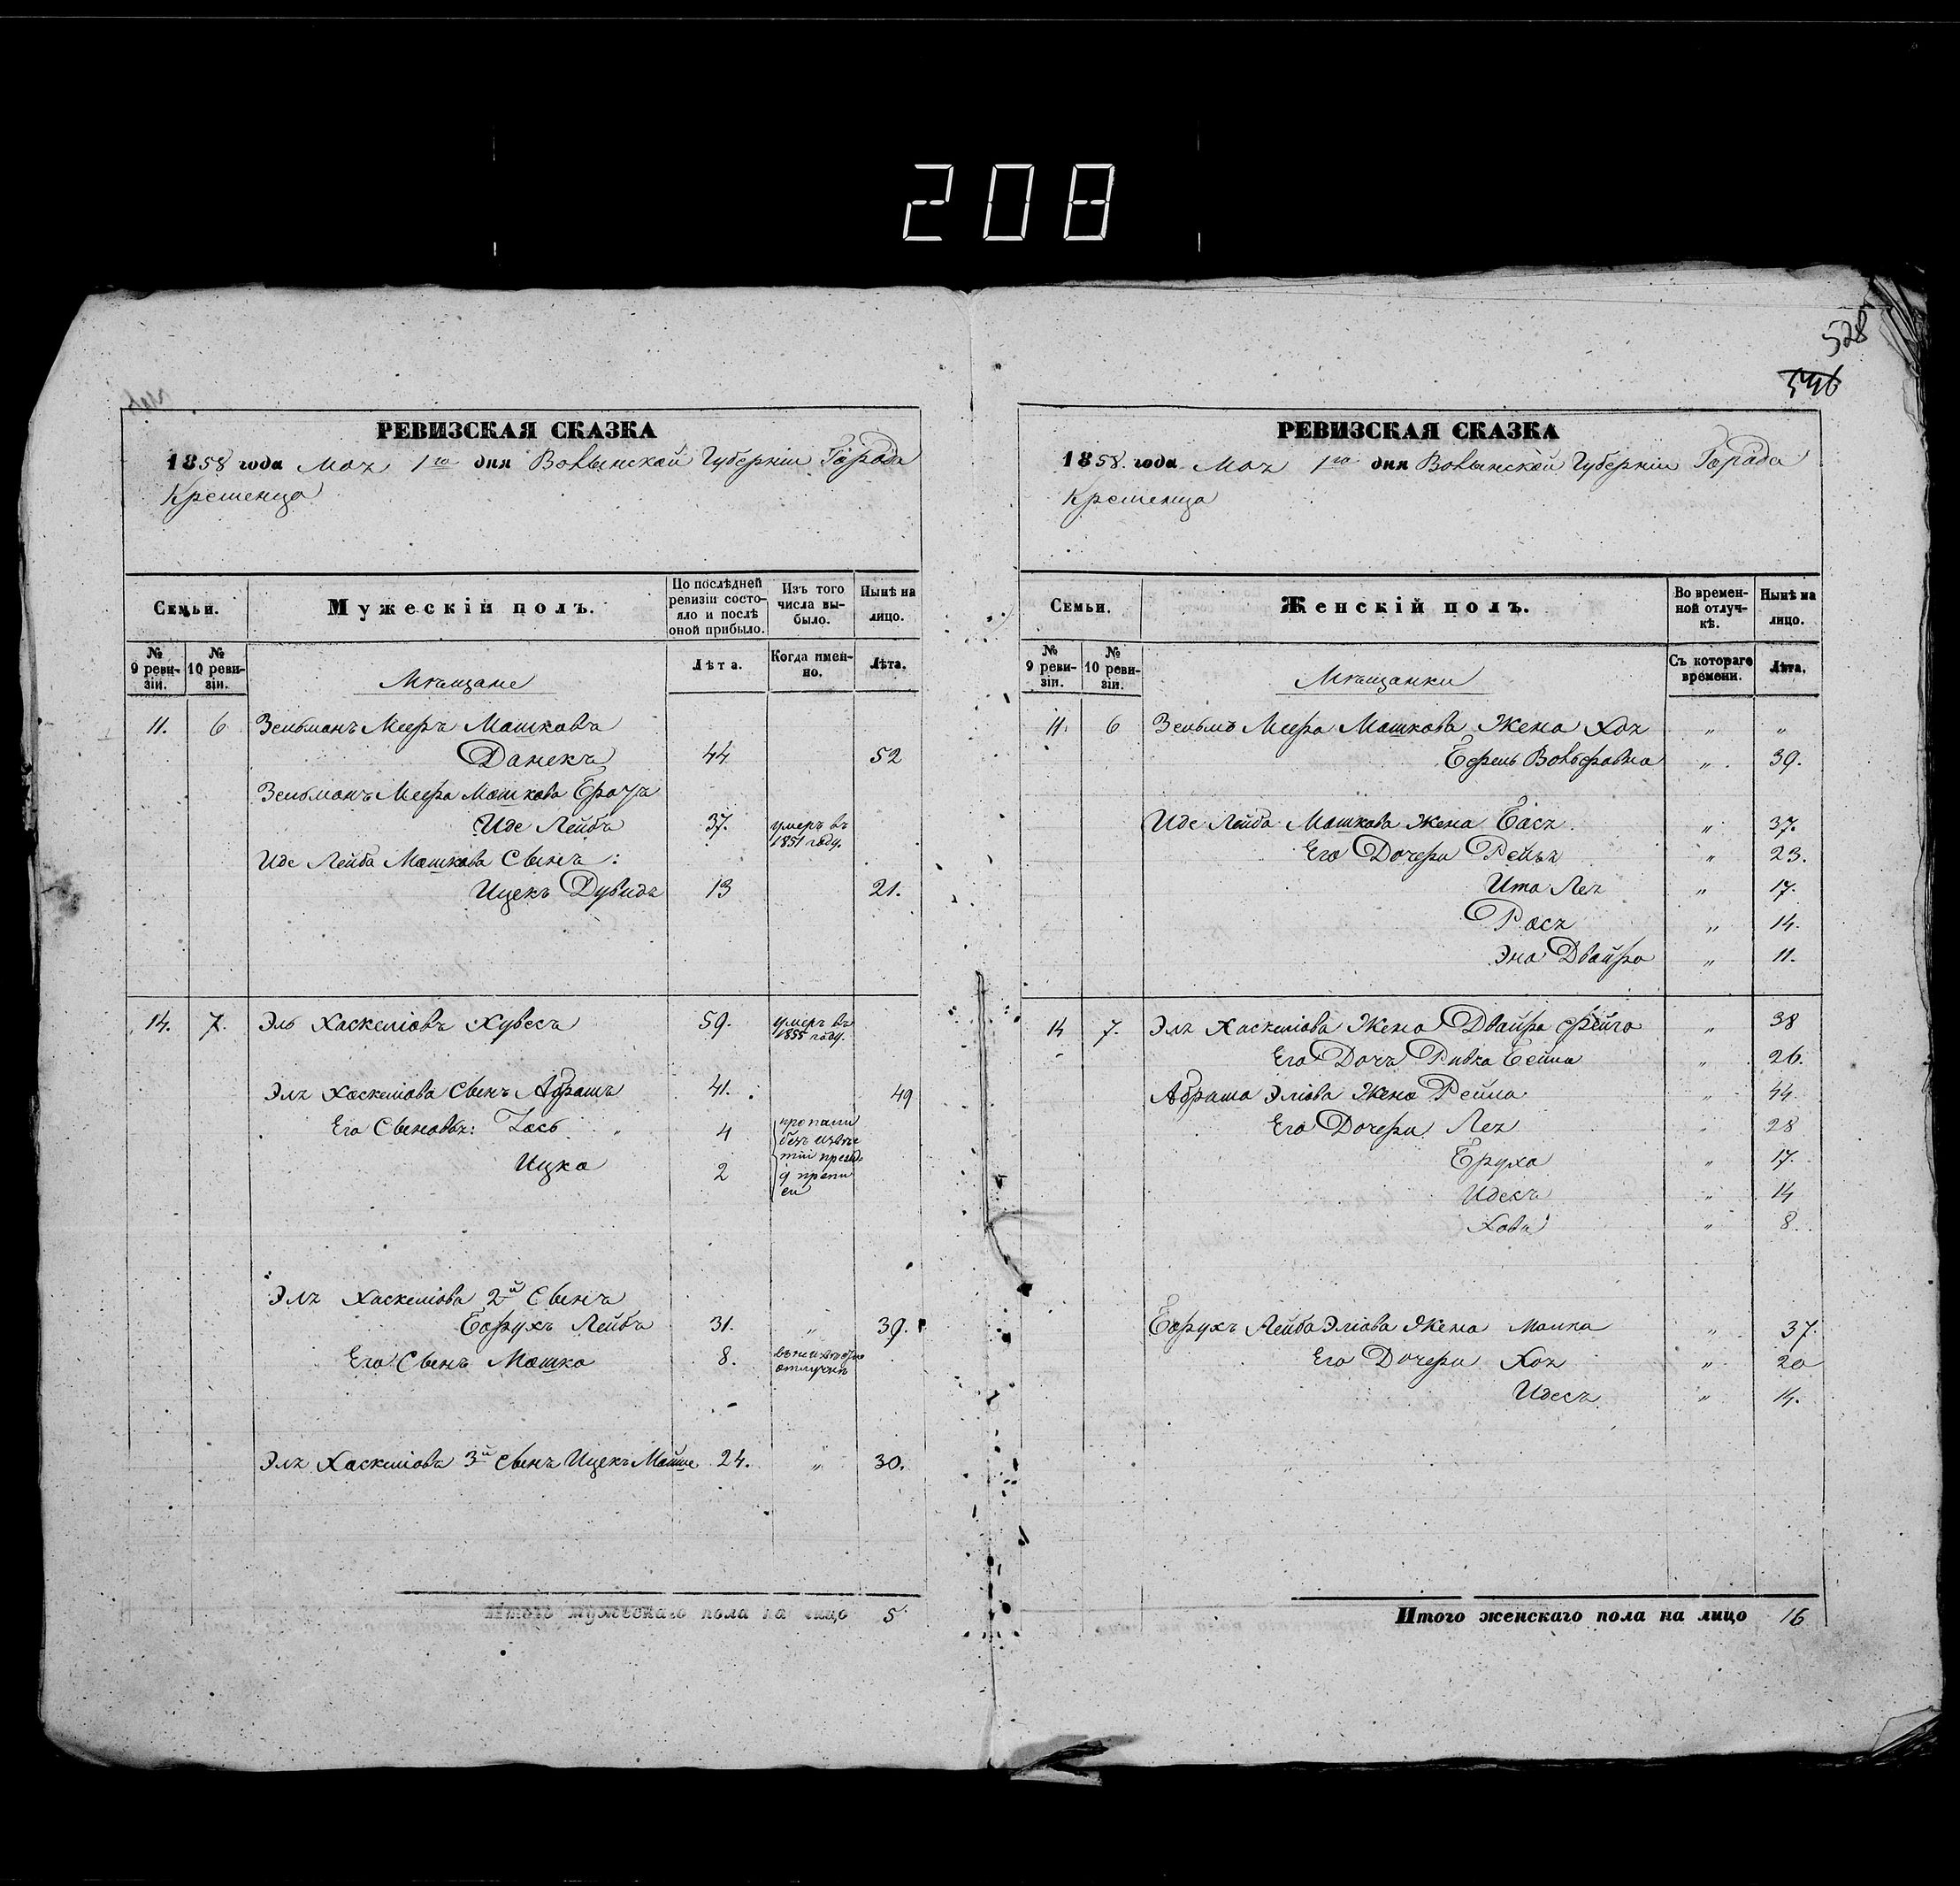 208
528
546
РЕВИЗСКАЯ СКАЗКА
1858 года Мая 1го дня Волынской Губерніи Города
Кременца
Семьи.
Мужескій полъ.
По послѣдней ревизіи состояло и послѣ оной прибыло.
Изъ того числа выбыло.
Нынѣ на лицо.
№ 9 ревизіи.
№ 10 ревизіи.
Мѣщане
Лѣта.
Когда именно.
Лѣта.
11. 6 Зельманъ Мееръ Мошковъ
Данекъ 44 52
Зельманъ Меера Мошкова Братъ
Иде Лейбъ 37. умеръ въ
1851 году.
Иде Лейба Мошкова Сынъ:
Ицекъ Дувидъ 13 21.
14. 7. Эль Хаскеліовъ Хувесъ 59. умеръ въ
1855 году.
Эля Хаскеліова Сынъ Абрамъ 41. 49
Его Сыновья: Зось „ 4 пропали
безъ извѣс
Ицко 2
Эля Хаскеліова 2й Сынъ
Борухъ Лейбъ 31. „ 39.
Его Сынъ Мошко 8.
отлучкѣ
Эля Хаскеліова 3й сынъ Ицекъ Мойше 24. „ 30.
Итого мужескаго пола на лицо 5
РЕВИЗСКАЯ СКАЗКА
1858 года Мая 1го дня Волынской Губерніи Города
Кременца
Семьи.
Женскій полъ.
Во временной отлучкѣ.
Нынѣ на лицо.
№ 9 ревизіи.
№ 10 ревизіи.
Мѣщанки
Съ котораго времени.
Лѣта.
11. 6 Меера Мошкова Жена Хая „ „
Вольфовна „ 39.
Иде Лейба Мошкова Жена Бася „ 37.
Его Дочери Рейзя „ 23.
Ита Лея „ 17.
Рося „ 14.
Эна Двайра „ 11.
14 7. Эля Хаскеліова Жена Двайра Фейга „ 38
Его Дочь Ривка Бейла „ 26.
Абрама Эліова Жена Рейла „ 44.
Его Дочери Лея „ 28
Бруха „ 17.
Идесъ „ 14
Хова „ 8.
Борухъ Лейба Эліова Жена Малка „ 37.
Его Дочери Хая „ 20
Идесъ „ 14.
Итого женскаго пола на лицо 16